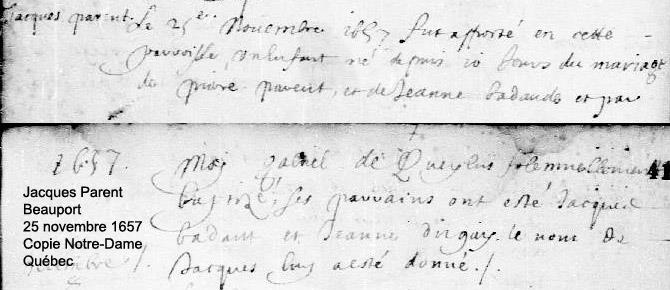 Jacques parent. Le 25e Novembre 1657 fut apporté en cette
parroisse, un enfant né depuis 10 Jours du mariage
de pierre parent, et de Jeanne badaude et par
1657. Moy gabriel de Queylus solemnellement 41
baptizé, ses parrains ont esté Jacques
badaut et Jeanne le nom de
Jacques luy a esté donné /.
Jacques Parent
Beauport
25 novembre 1657
Copie Notre-Dame
Québec